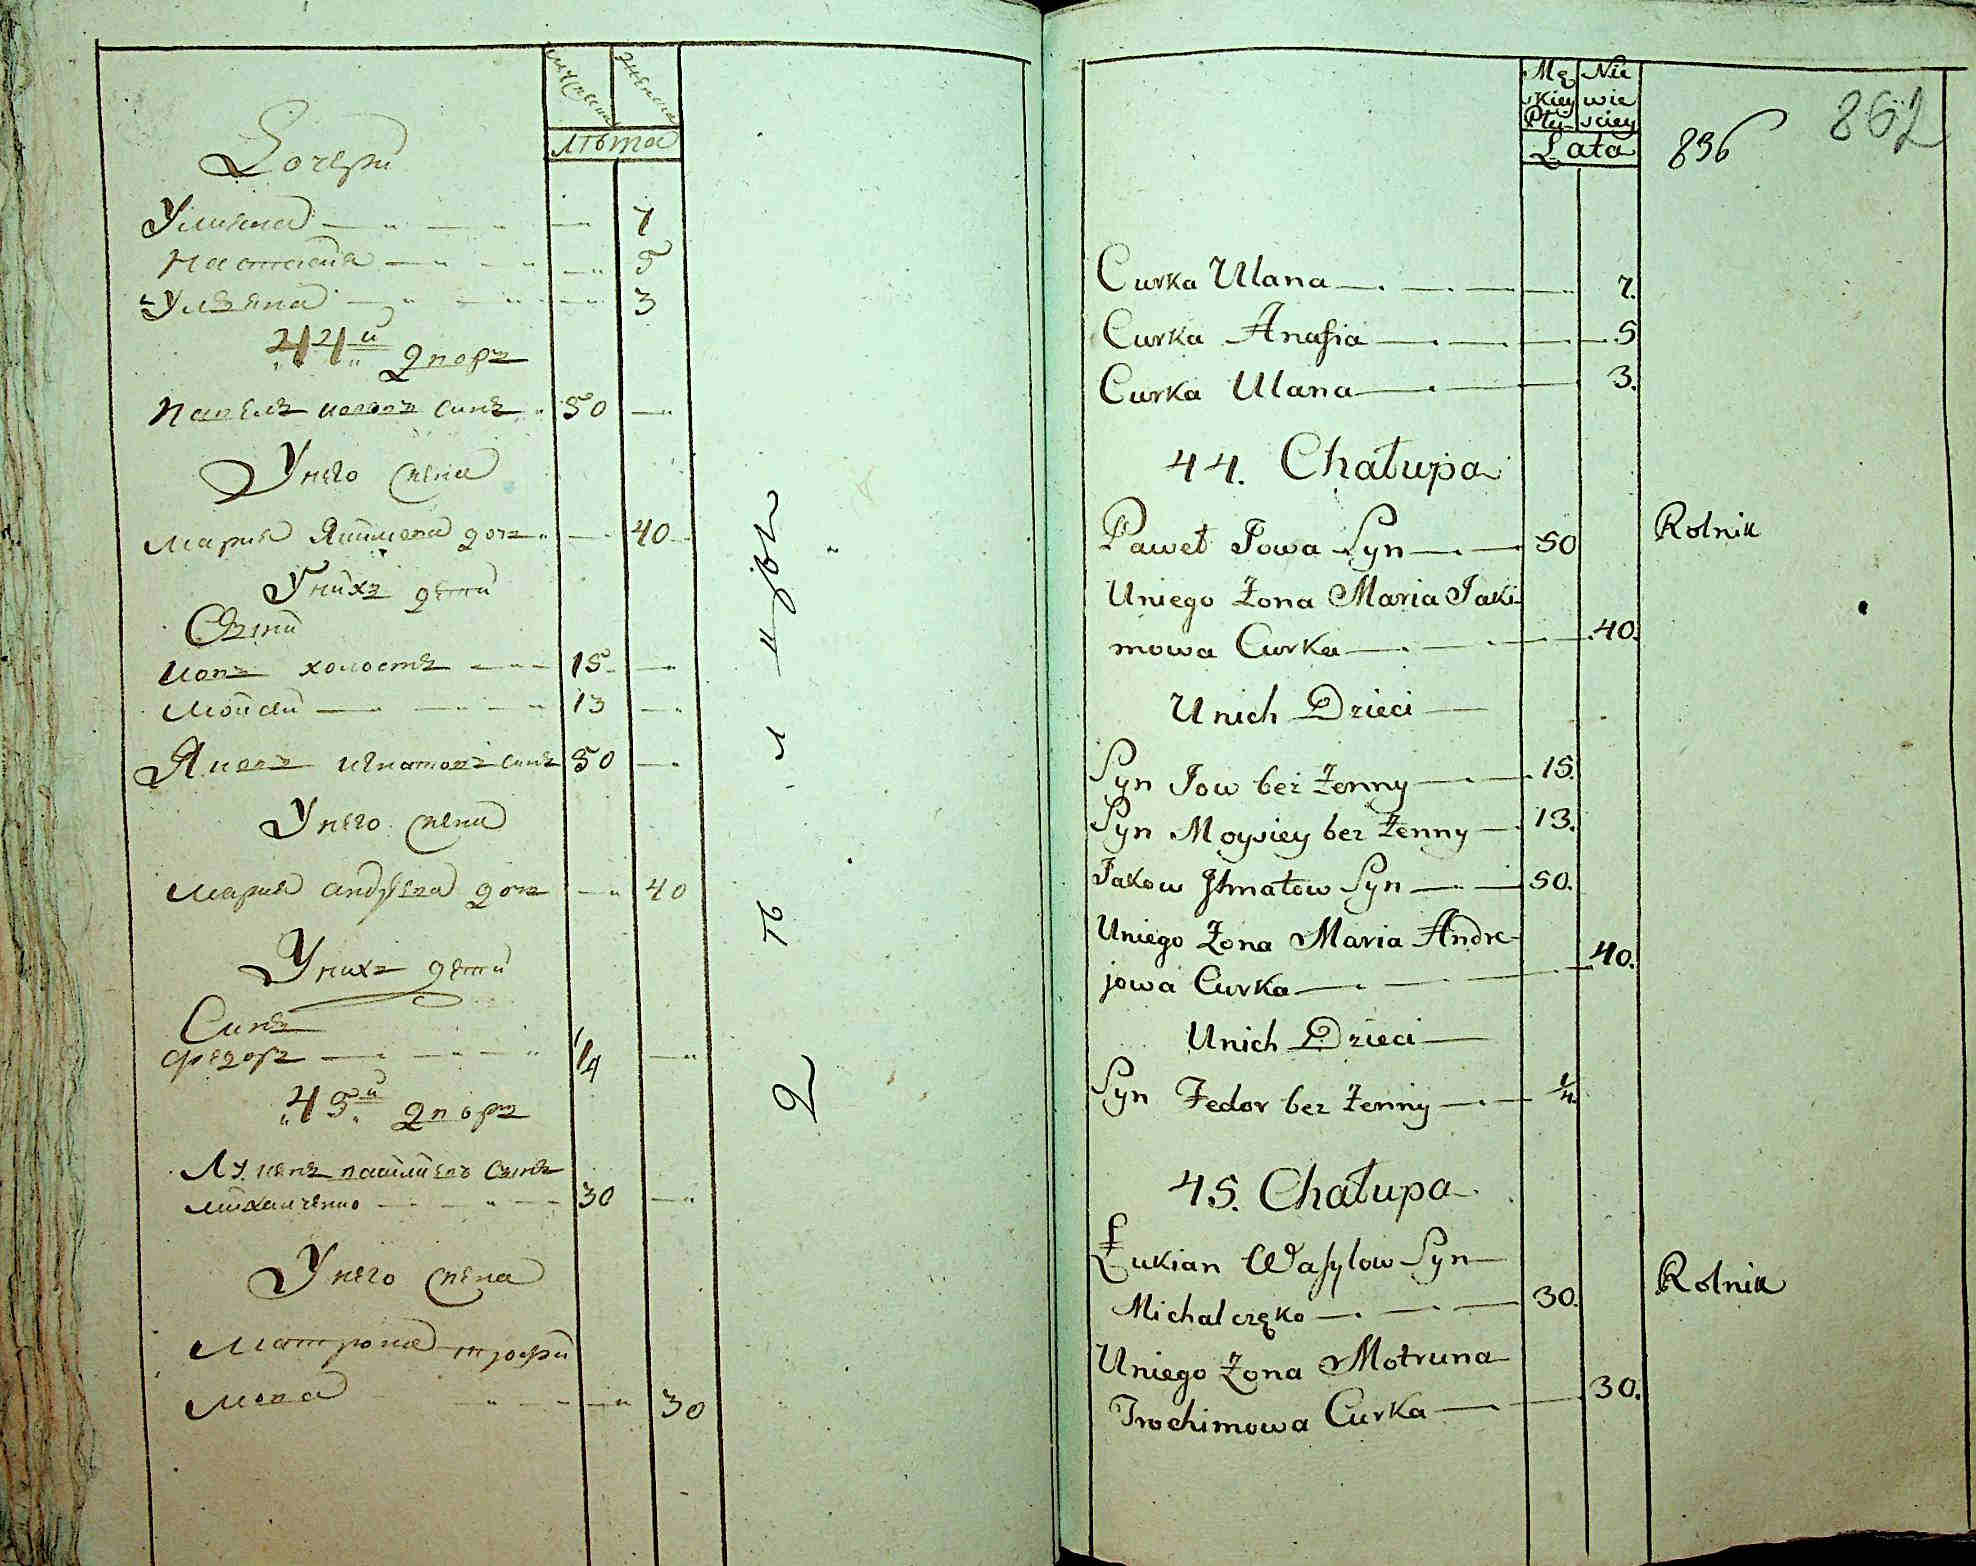 мужеска
женска
лѣта
Дочери
Улияна — — — 7
Настасия — — — 5
Улияна — — — 3
44й дворъ
Павелъ иововъ синъ 50 —
У него жена
Мария Якимова дочь — 40
У нихъ дети
Сыни
Иовъ холостъ — — 15 —
Мойсей — — — 13 —
Яковъ игнатовъ синъ 50 —
У него жена
Мария андрѣева дочь — 40
У нихъ дети
Синъ
Федоръ — — — 1/4 —
45й дворъ
Лукянъ василиевъ сынъ
михалченко — — — 30 —
У него жена
Матрона трофи
мова — — — 30
Mę Nie
skiey wie
Płu sciey
Lata
896
862
Curka Ulana — — — 7.
Curka Anasia — — — 5
Curka Ulana — — — 3.
44. Chałupa
Paweł Jowa Syn — — 50 Rolnik
Uniego Żona Maria Jaki-
mowa Curka — — — 40.
Unich Dzieci —
Syn Jow bez Żenny — — 15.
Syn Moysiey bez Żenny — 13.
Jakow Ihnatow Syn — — 50.
Uniego Żona Maria Andre-
jowa Curka — — — 40.
Unich Dzieci —
Syn Fedor bez Żenny — — 1/4.
45. Chałupa
Łukian Wasylow Syn —
Michalczęko — — — 30. Rolnik
Uniego Żona Motruna
Trochimowa Curka — — 30.